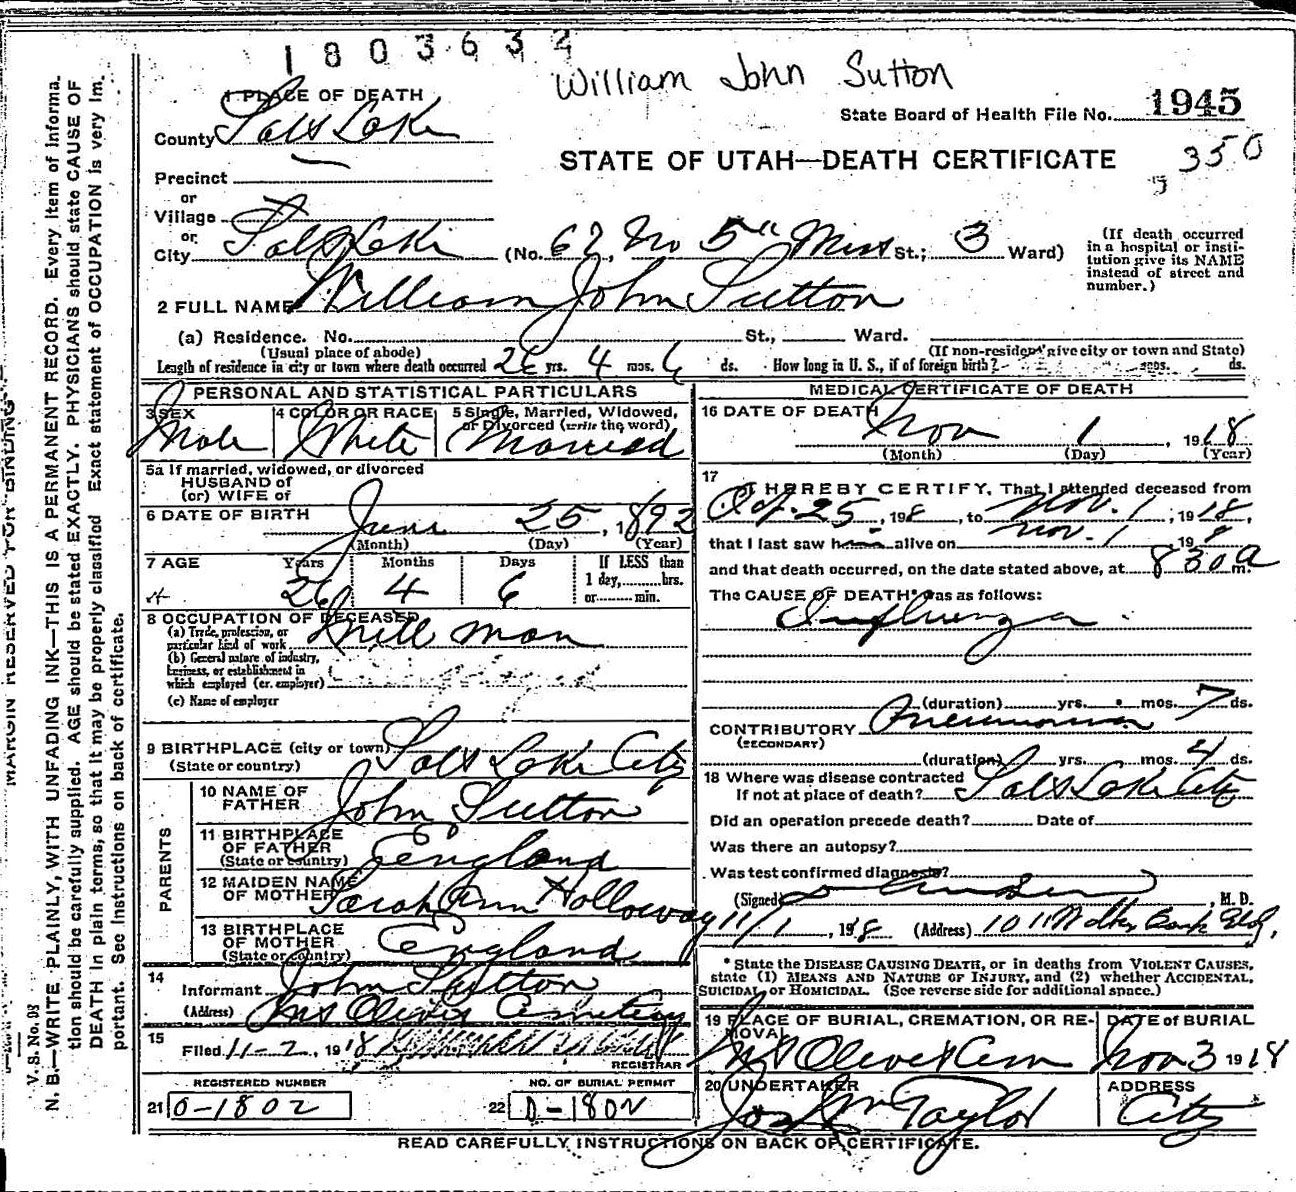 1803632
William John Sutton
State Board of Health File No. 1945
350
STATE OF UTAH—DEATH CERTIFICATE
1 PLACE OF DEATH
County Salt Lake
Precinct
or
Village
or
City Salt Lake (No. 62, No 5th St.; 3 Ward)
(If death occurred in a hospital or institution give its NAME instead of street and number.)
2 FULL NAME William John Sutton
(a) Residence. No. St., Ward.
(Usual place of abode) (If non-resident give city or town and State)
Length of residence in city or town where death occurred 26 yrs. 4 mos. 6 ds. How long in U. S., if of foreign birth? mos. ds.
PERSONAL AND STATISTICAL PARTICULARS
3 SEX Male
4 COLOR OR RACE White
5 Single, Married, Widowed, or Divorced (write the word) Married
5a If married, widowed, or divorced
HUSBAND of
(or) WIFE of
6 DATE OF BIRTH June 25, 1892
(Month) (Day) (Year)
7 AGE Years Months Days If LESS than
1 day, hrs.
or min.
26 4 6
8 OCCUPATION OF DECEASED
(a) Trade, profession, or particular kind of work Mill man
(b) General nature of industry, business, or establishment in which employed (or employer)
(c) Name of employer
9 BIRTHPLACE (city or town) Salt Lake City
(State or country)
PARENTS
10 NAME OF FATHER John Sutton
11 BIRTHPLACE OF FATHER (State or country) England
12 MAIDEN NAME OF MOTHER Sarah Ann Holloway
13 BIRTHPLACE OF MOTHER (State or country) England
14
Informant John Sutton
(Address) Mt Olivet Cemetery
15 Filed 11-2, 1918
REGISTRAR
REGISTERED NUMBER
21 O-1802
NO. OF BURIAL PERMIT
22 O-1802
MEDICAL CERTIFICATE OF DEATH
16 DATE OF DEATH
Nov 1, 1918
(Month) (Day) (Year)
17
I HEREBY CERTIFY, That I attended deceased from
Oct. 25, 198, to Nov. 1, 1918,
that I last saw him alive on Nov. 1 198
and that death occurred, on the date stated above, at 830 a m.
The CAUSE OF DEATH* was as follows:
Influenza
(duration) yrs. mos. 7 ds.
CONTRIBUTORY Pneumonia
(SECONDARY)
(duration) yrs., mos. 4 ds.
18 Where was disease contracted
If not at place of death? Salt Lake City
Did an operation precede death? Date of
Was there an autopsy?
Was test confirmed diagnosis?
(Signed) , M. D.
11/1, 198 (Address) 1011 Walker Bank Bldg.
*State the DISEASE CAUSING DEATH, or in deaths from VIOLENT CAUSES,
state (1) MEANS AND NATURE OF INJURY, and (2) whether ACCIDENTAL,
SUICIDAL or HOMICIDAL. (See reverse side for additional space.)
19 PLACE OF BURIAL, CREMATION, OR REMOVAL
Mt Olivet Cem
DATE of BURIAL
Nov 3 1918
20 UNDERTAKER
Jos Wm Taylor
ADDRESS
City
READ CAREFULLY INSTRUCTIONS ON BACK OF CERTIFICATE.
MARGIN RESERVED FOR BINDING
V. S. No. 98
N. B.—WRITE PLAINLY, WITH UNFADING INK—THIS IS A PERMANENT RECORD. Every item of informa-
tion should be carefully supplied. AGE should be stated EXACTLY. PHYSICIANS should state CAUSE OF
DEATH in plain terms, so that it may be properly classified Exact statement of OCCUPATION is very im-
portant. See Instructions on back of certificate.